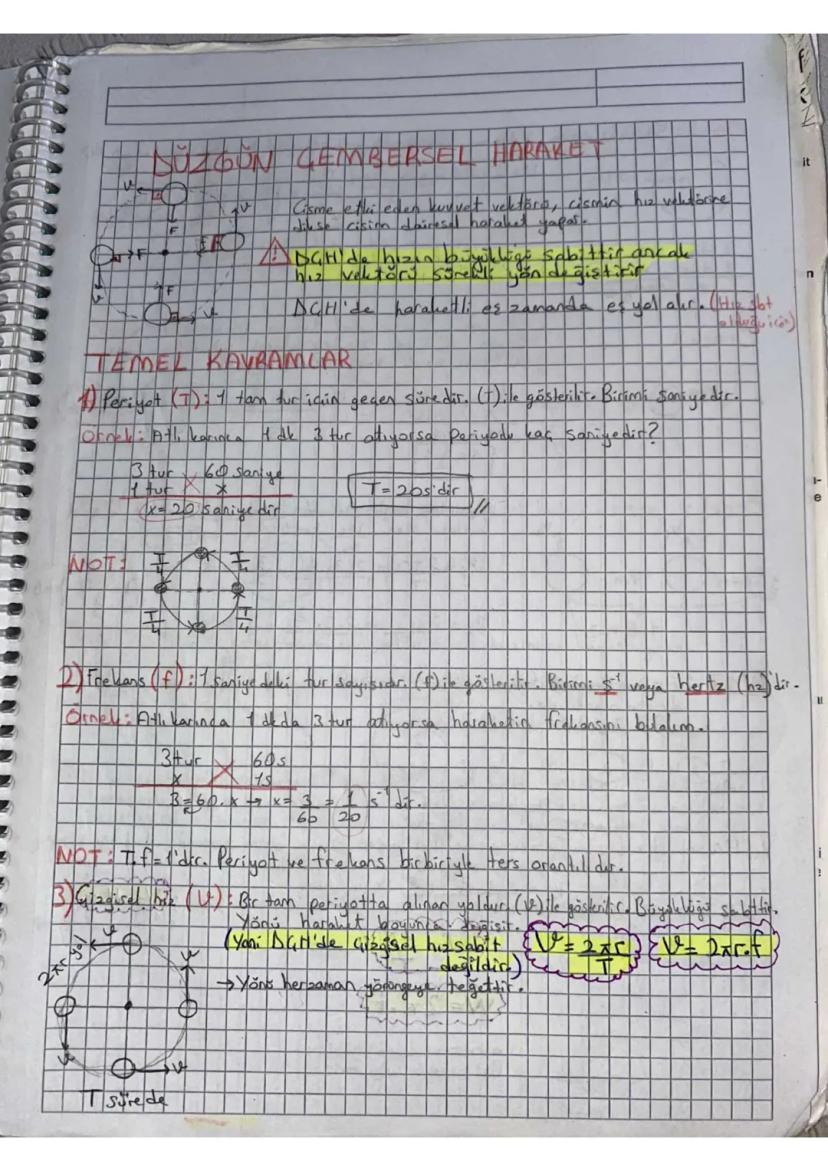 DÜZGÜN ÇEMBERSEL HARAKET
Cisme etki eden kuvvet vektörü, cismin hız vektörüne
dikse cisim dairesel haraket yapar.
DÇH'de hızın büyüklüğü sabittir ancak
hız vektörü sürekli yön değiştirir
DÇH'de haraketli eş zamanda eş yol alır. (Hız sbt
olduğu için)
V
F
V
F
F
V
F
V
TEMEL KAVRAMLAR
1) Periyot (T): 1 tam tur için geçen süredir. (T) ile gösterilir. Birimi saniyedir.
Örnek: Atlı karınca 1 dk 3 tur atıyorsa periyodu kaç saniyedir?
3 tur 60 saniye
1 tur x
x=20 saniyedir
T=20s'dir
NOT:
T/4 T/4
T/4 T/4
2) Frekans (f): 1 saniyedeki tur sayısıdır. (f) ile gösterilir. Birimi s⁻¹ veya hertz (hz)'dir.
Örnek: Atlı karınca 1 dk da 3 tur atıyorsa haraketin frekansını bulalım.
3 tur 60s
x 1s
3=60.x → x= 3/60 = 1/20 s⁻¹ dir.
NOT: T.f=1'dir. Periyot ve frekans birbiriyle ters orantılıdır.
3) Çizgisel hız (V): Bir tam periyotta alınan yoldur. (V) ile gösterilir. Büyüklüğü sabittir.
Yönü haraket boyunca değişir.
(Yani DÇH'de çizgisel hız sabit
değildir.)
V= 2πr/T
V= 2πr.f
→ Yönü her zaman yörüngeye teğettir.
2πr yol
V
V
V
V
T sürede